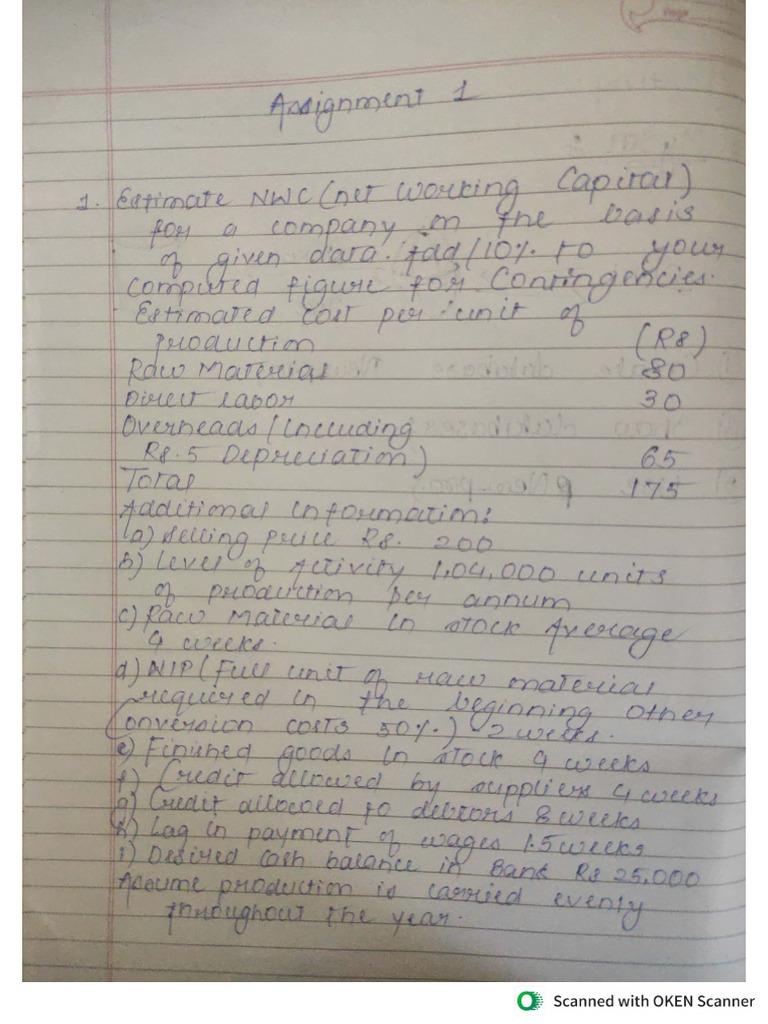 Assignment 1
1. Estimate NWC (net working Capital)
for a company on the basis
of given data. Add 10% to your
computed figure for Contingencies.
Estimated cost per unit of
production (Rs)
Raw Material 80
Direct labor 30
Overheads (Including
Rs. 5 Depreciation) 65
Total 175
Additional Information:
a) Selling price Rs. 200
b) Level of Activity 1,04,000 units
of production per annum
c) Raw material in stock Average
4 weeks.
d) WIP (Full unit of raw material
required in the beginning other
Conversion costs 50%.) 2 weeks.
e) Finished goods in stock 4 weeks
f) Credit allowed by suppliers 4 weeks
g) Credit allowed to debtors 8 weeks
h) Lag in payment of wages 1.5 weeks
i) Desired cash balance in Bank Rs 25,000
Assume production is carried evenly
throughout the year.
Scanned with OKEN Scanner